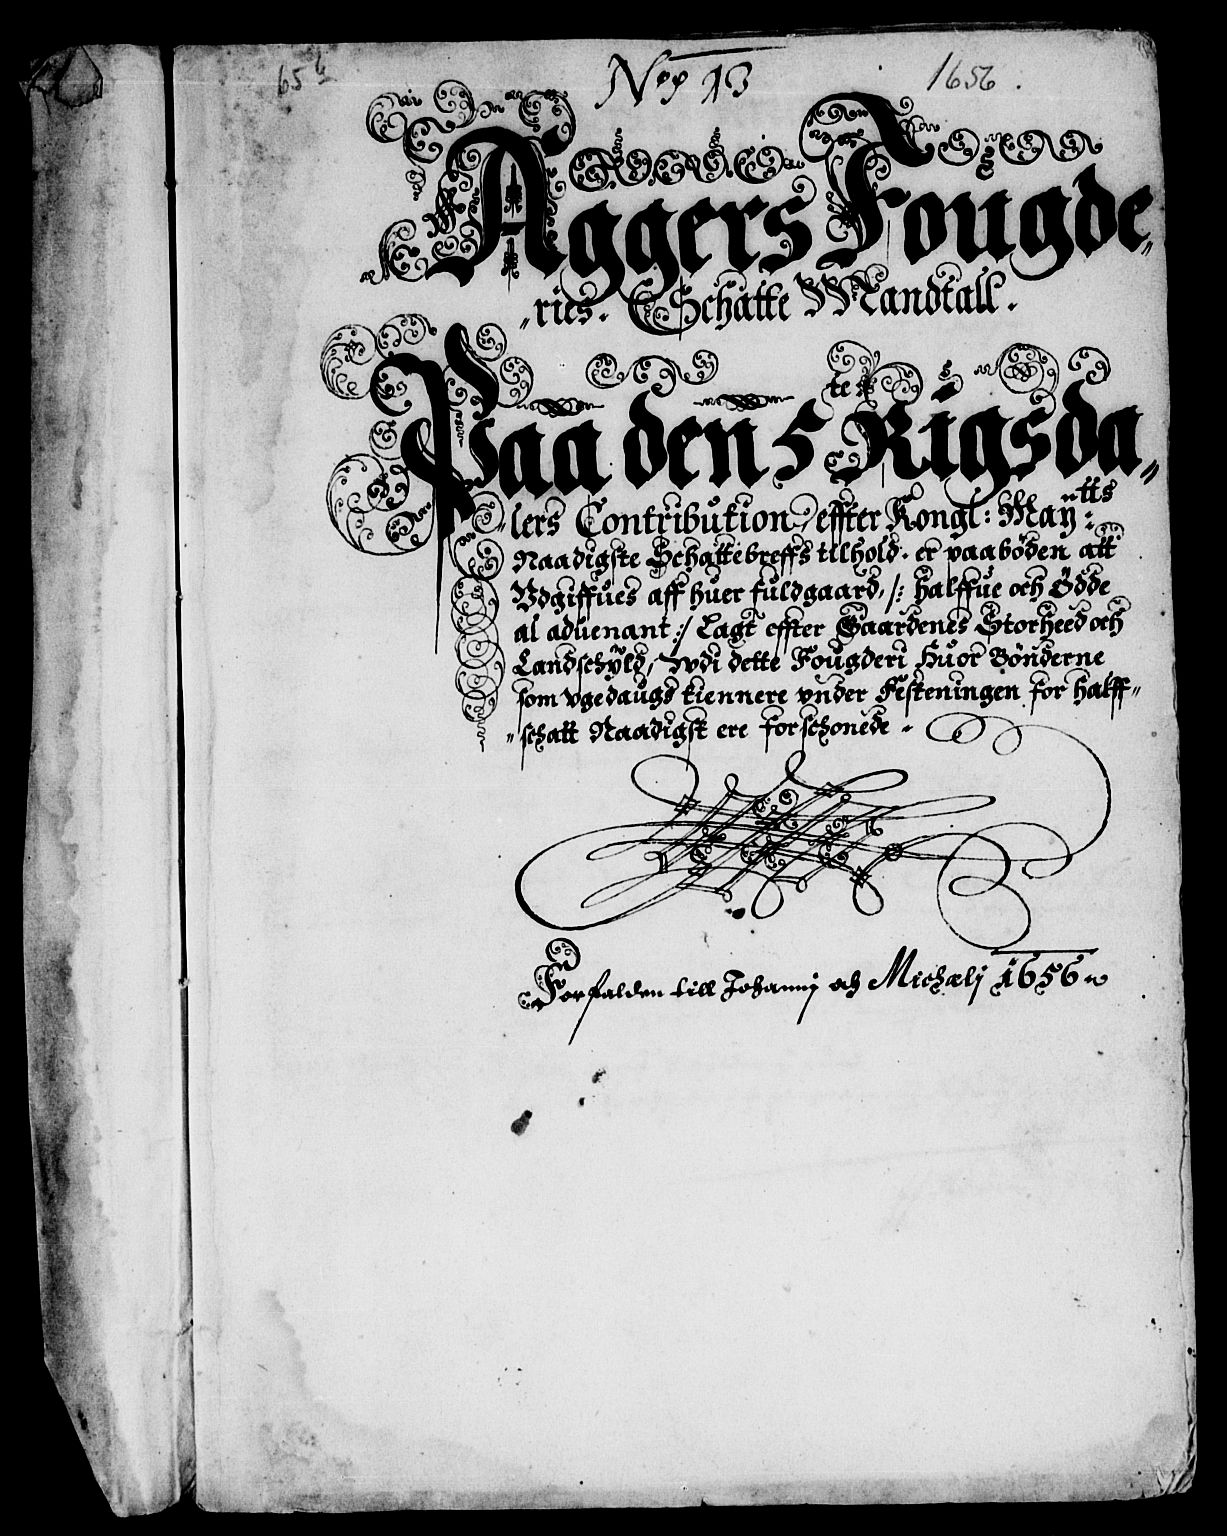 656
No 13
1656.
Aggers Fougde„
„ries. Schatte Mandtall.
Paa den 5 Rigsda„
te
„lers Contribution, effter Kongl: May:tts
Naadigste Schattebreffs tilhold. er paaböden att
Vdgiffues aff huer fuldgaard, /: halffue och Ödde
al aduenant :/ Lagt effter Gaardenes Storheed och
Landschÿld, Vdi dette Fougderi Huor Bönderne
som vgedaugs tiennere vnder Festeningen for halff„
„schatt Naadigst ere forschonede.
Forfalden till Johannj och Michælj 1656